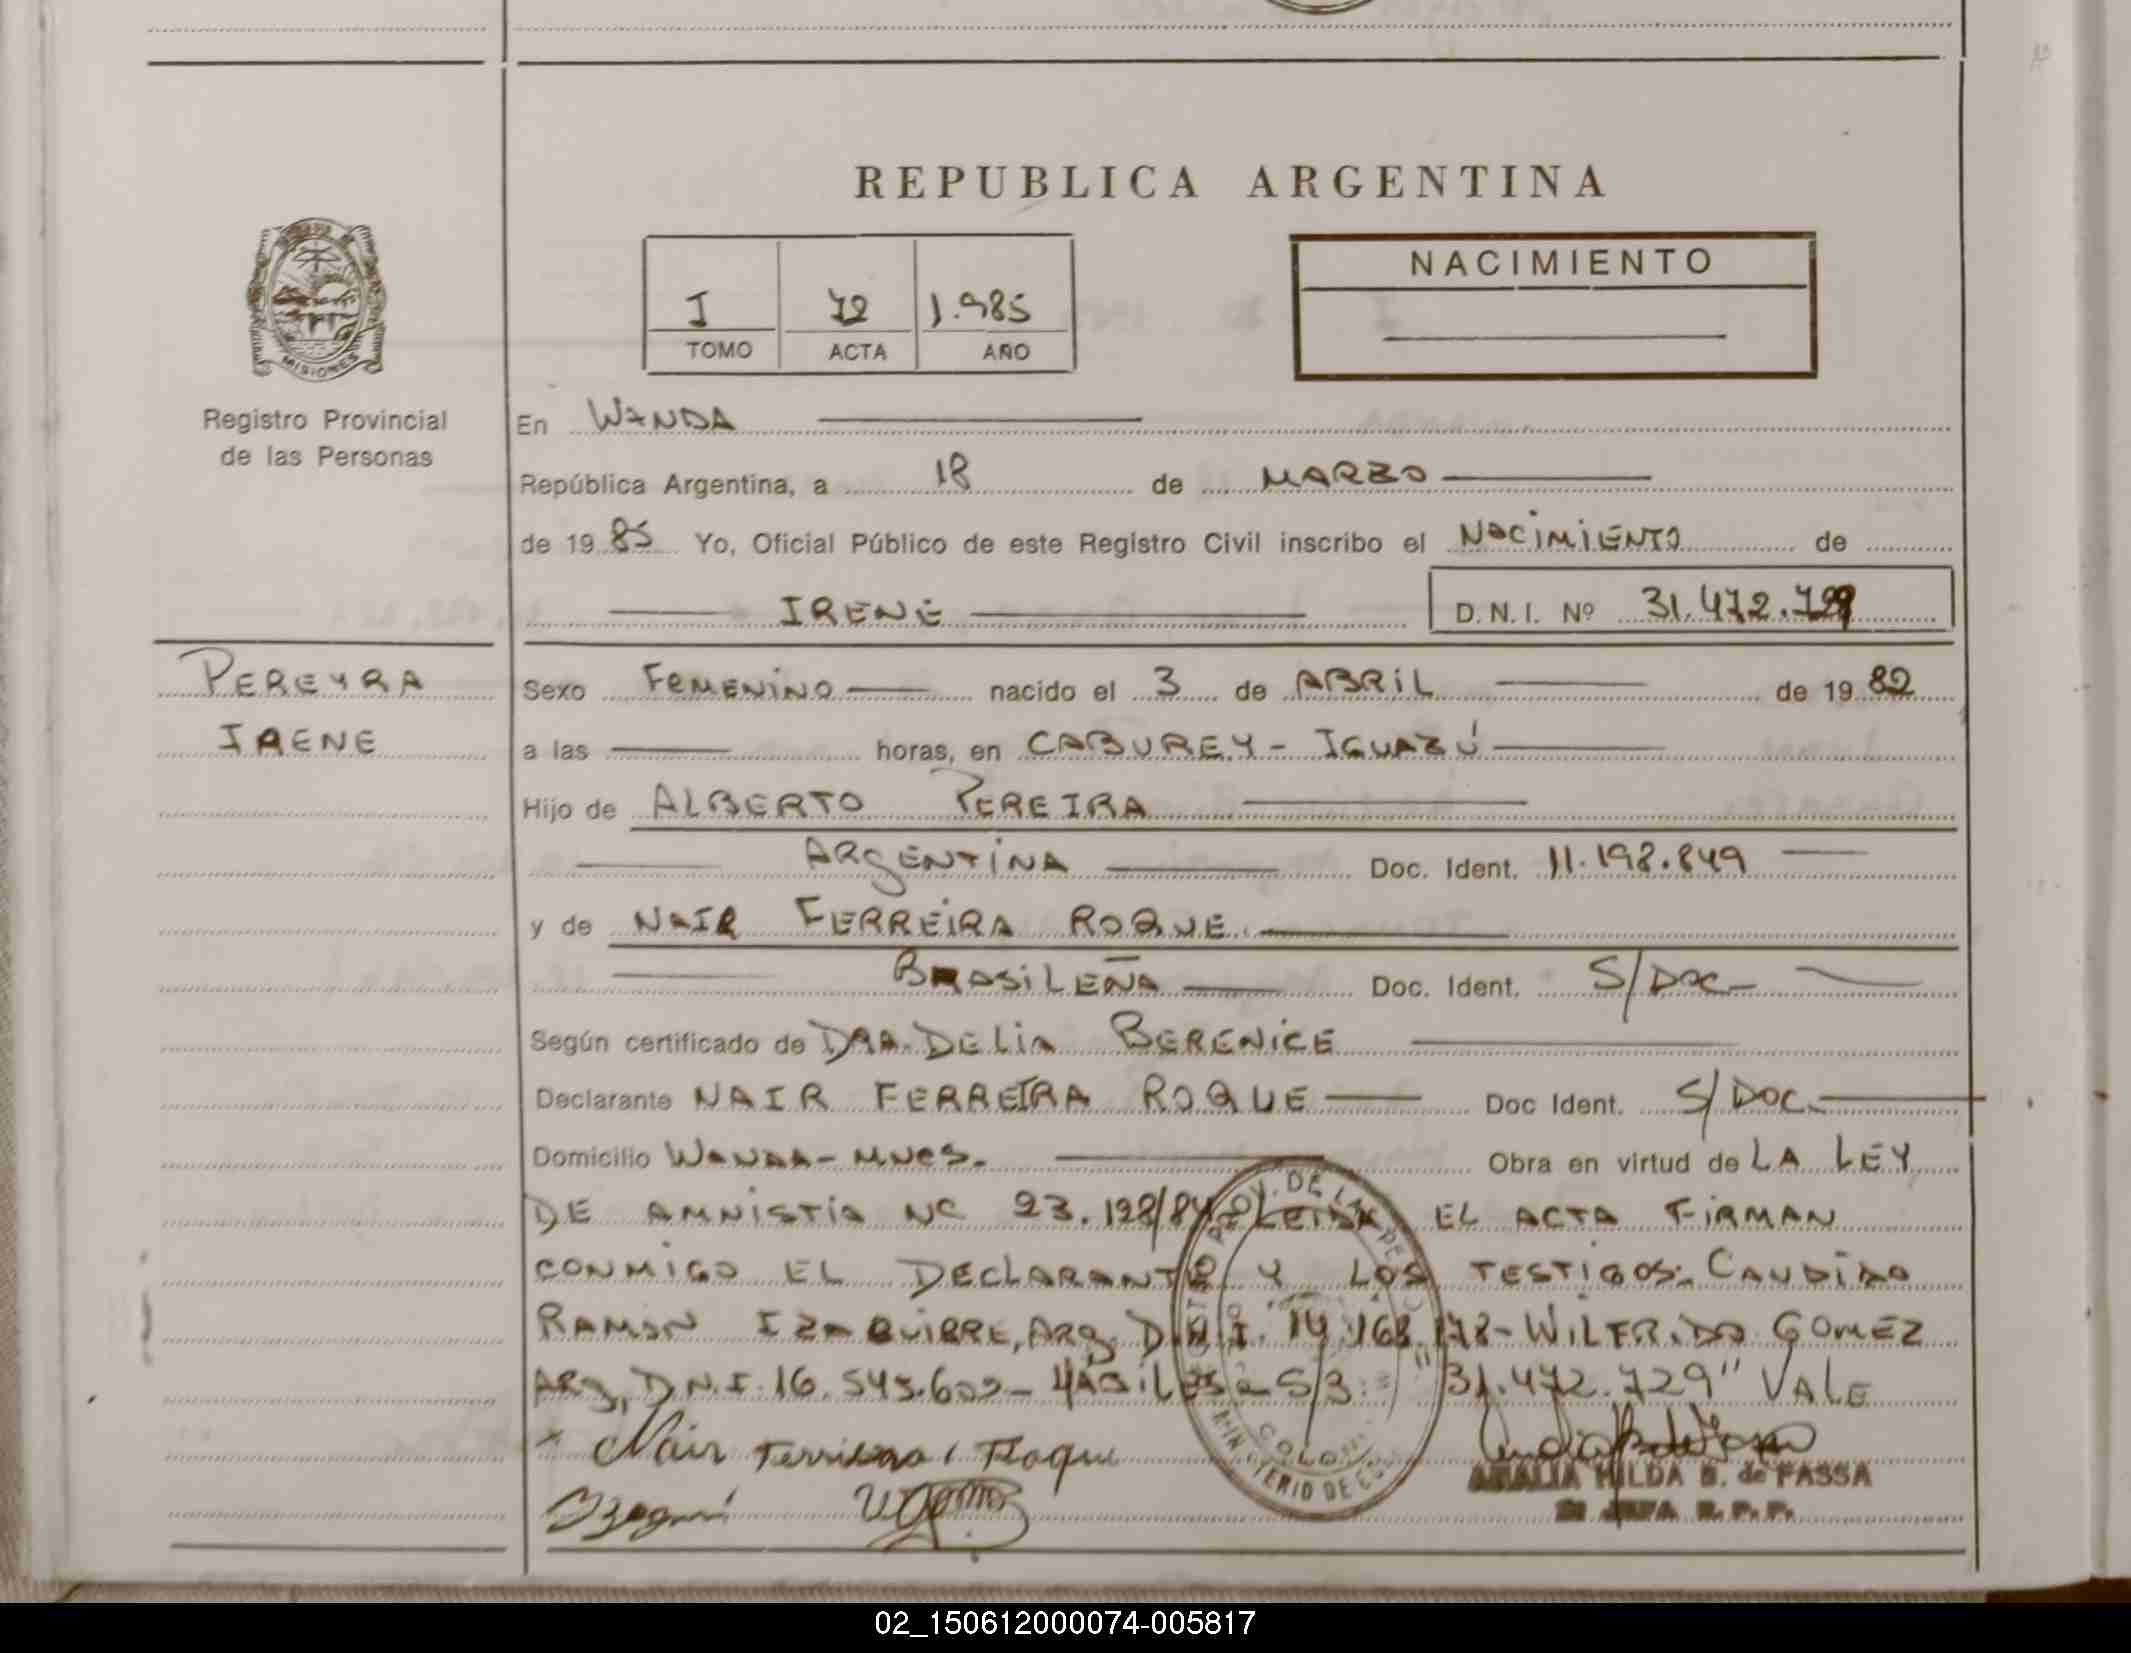 REPUBLICA ARGENTINA
MISIONES
Registro Provincial
de las Personas
I 72 1.985
TOMO ACTA AÑO
NACIMIENTO
En WANDA
República Argentina, a 18 de MARZO
de 1985 Yo, Oficial Público de este Registro Civil inscribo el NACIMIENTO de
IRENE D.N.I. Nº 31.472.729
PEREYRA
IRENE
Sexo FEMENINO nacido el 3 de ABRIL de 1982
a las horas, en CABUREY - IGUAZÚ
Hijo de ALBERTO PEREIRA
ARGENTINA Doc. Ident. 11.198.849
y de NAIR FERREIRA ROQUE
BRASILEÑA Doc. Ident. S/DOC-
Según certificado de DRA. DELIA BERENICE
Declarante NAIR FERREIRA ROQUE Doc Ident. S/DOC.
Domicilio WANDA - MNES. Obra en virtud de LA LEY
DE AMNISTIA Nº 23.128/84 LEIDA EL ACTA FIRMAN
CONMIGO EL DECLARANTE Y LOS TESTIGOS: CANDIDO
RAMON IZAGUIRRE, ARG. D.N.I. 14.168.178 - WILFRIDO GOMEZ
ARG, D.N.I. 16.545.609 - HABILES - S/B: "31.472.729" VALE
Nair Ferreira Roque
AMALIA HILDA B. de FASSA
JEFA R. P. P.
02_150612000074-005817